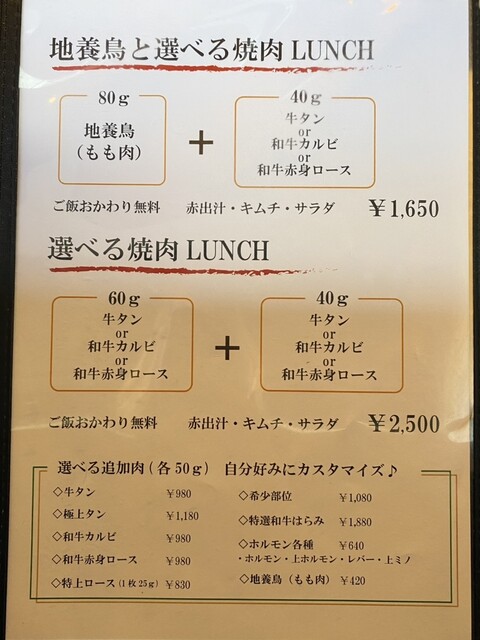 地養鳥と選べる焼肉 LUNCH
80g
地養鳥
（もも肉）
+
40g
牛タン
or
和牛カルビ
or
和牛赤身ロース
ご飯おかわり無料　赤出汁・キムチ・サラダ　￥1,650
選べる焼肉 LUNCH
60g
牛タン
or
和牛カルビ
or
和牛赤身ロース
+
40g
牛タン
or
和牛カルビ
or
和牛赤身ロース
ご飯おかわり無料　赤出汁・キムチ・サラダ　￥2,500
選べる追加肉（各50g）　自分好みにカスタマイズ♪
◇牛タン　￥980
◇極上タン　￥1,180
◇和牛カルビ　￥980
◇和牛赤身ロース　￥980
◇特上ロース（1枚25g）￥830
◇希少部位　￥1,080
◇特選和牛はらみ　￥1,880
◇ホルモン各種　￥640
・ホルモン・上ホルモン・レバー・上ミノ
◇地養鳥（もも肉）￥420